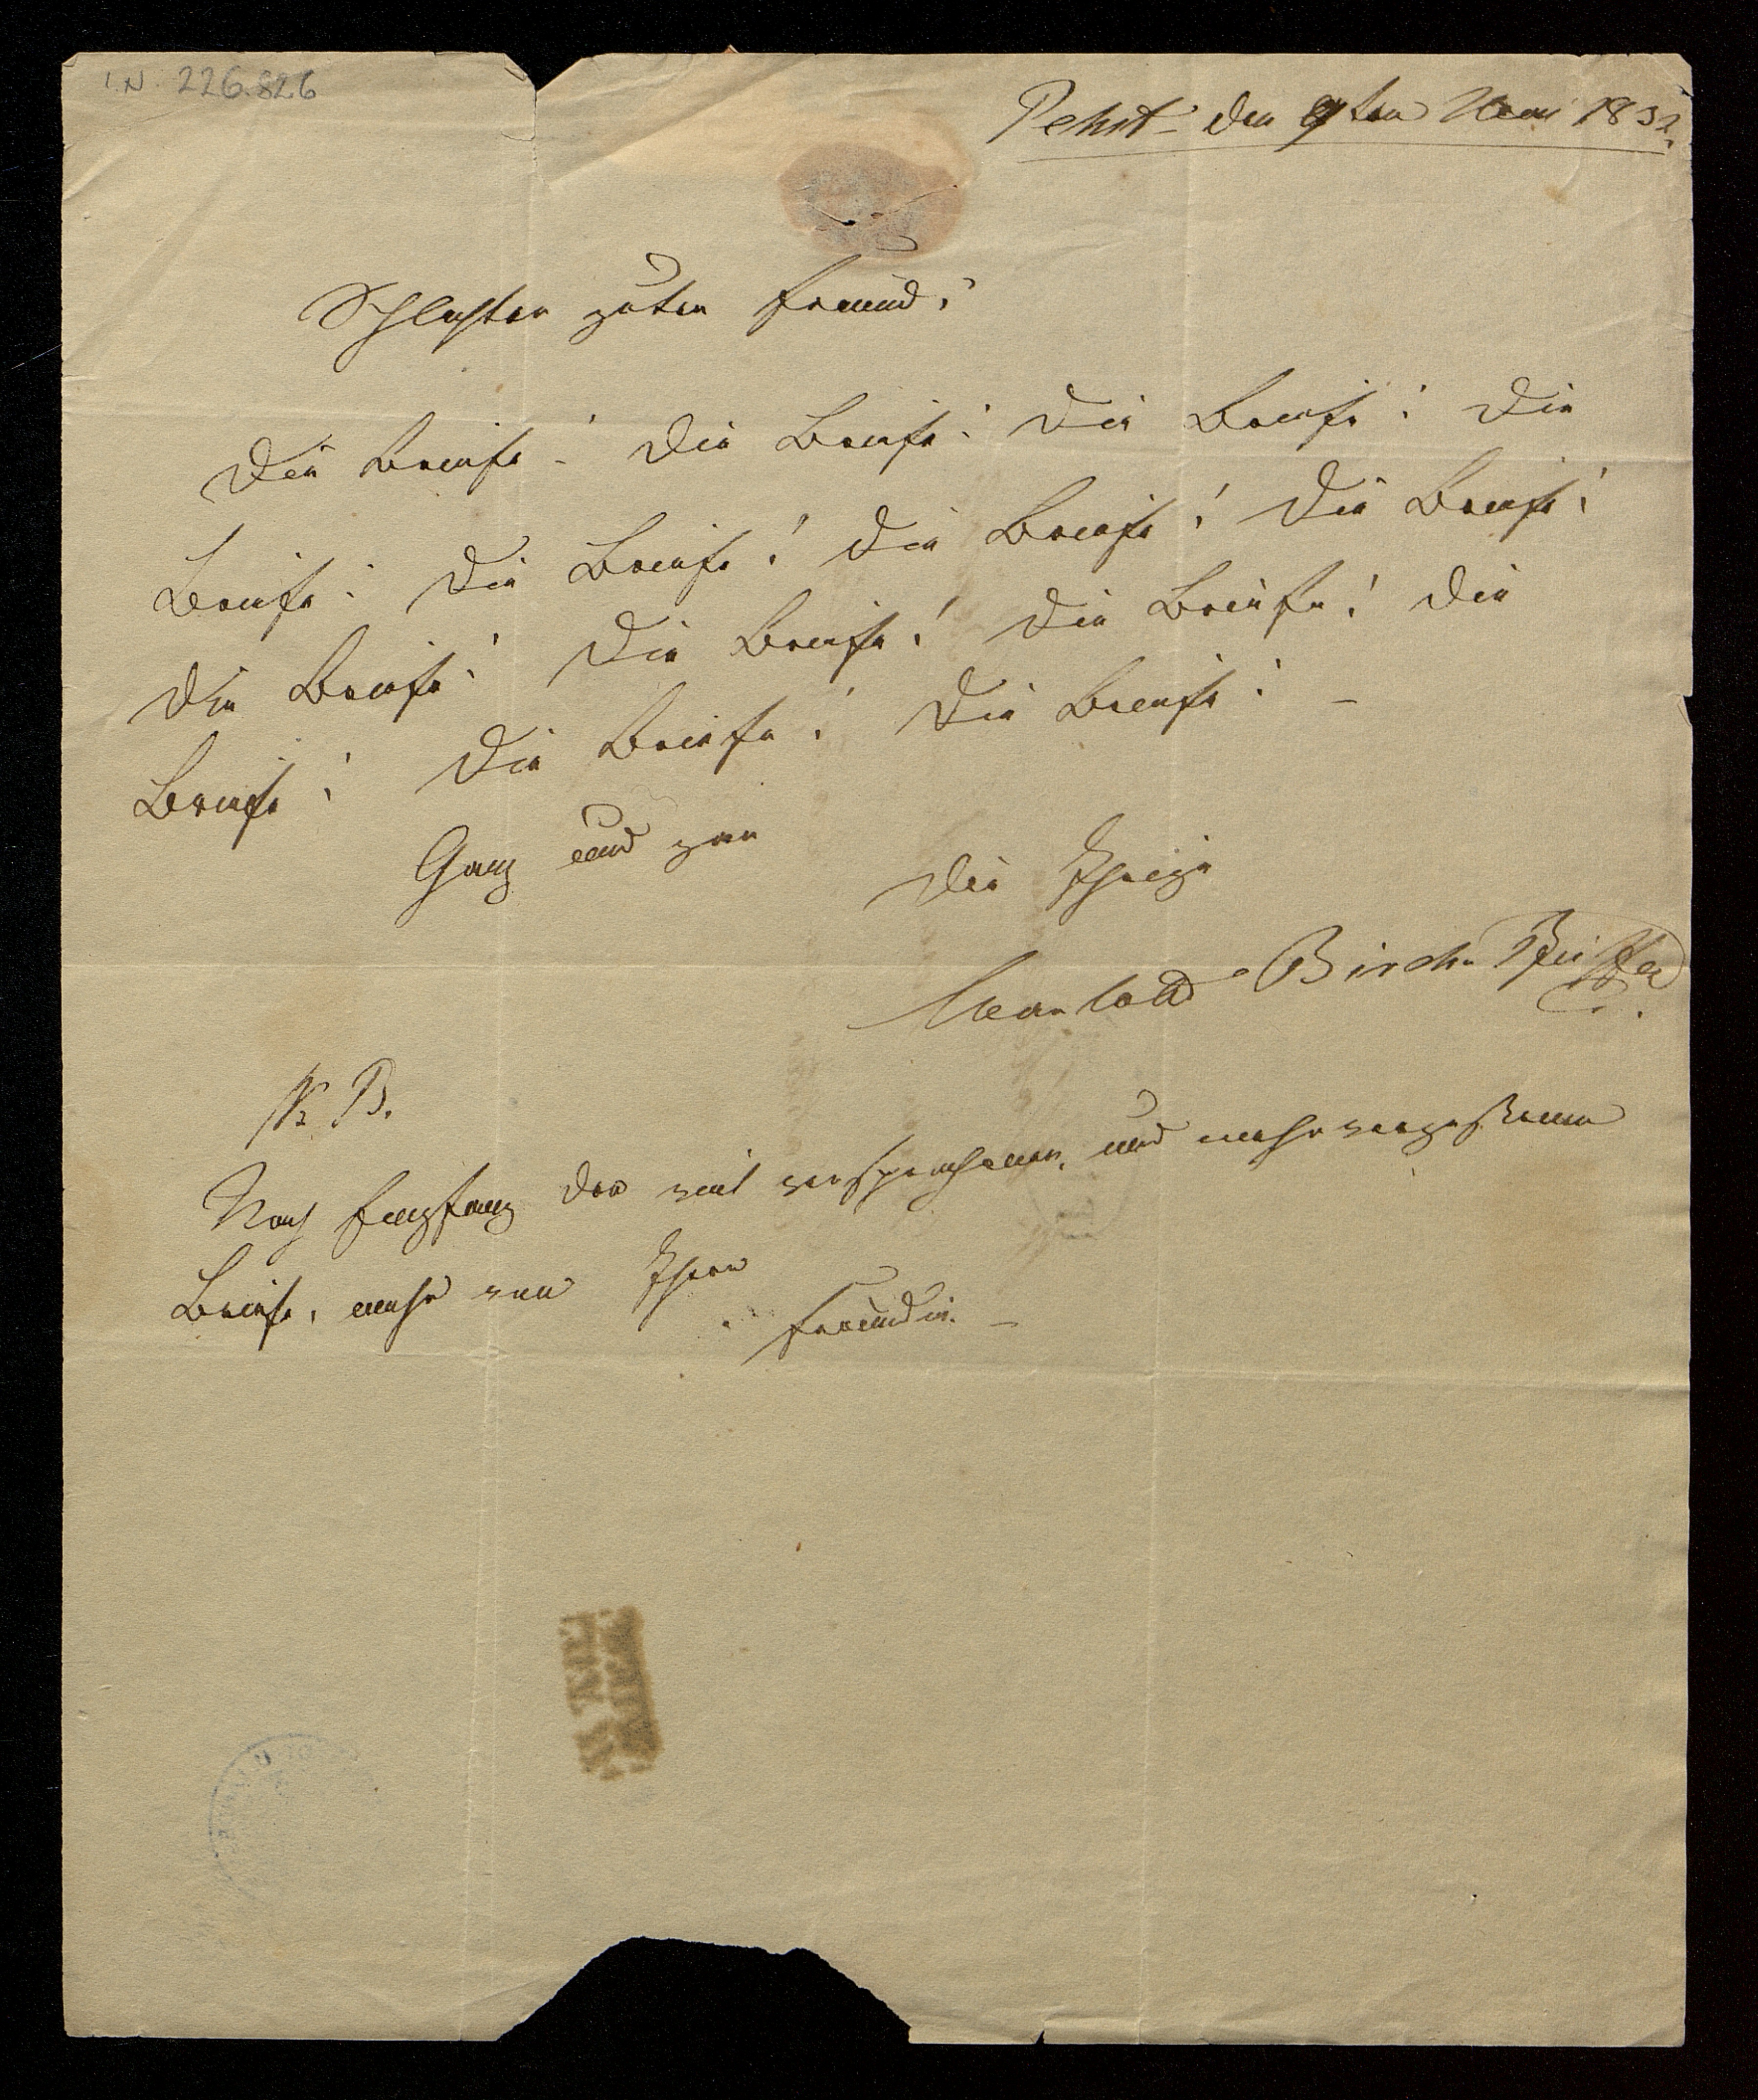 I.N. 226.826
Pesth den 9ten Mai 1832.
Schlechter guter Freund!
Die Briefe! Die Briefe! Die Briefe! Die
Briefe! Die Briefe! Die Briefe! Die Briefe!
Die Briefe! Die Briefe! Die Briefe! Die
Briefe! Die Briefe! Die Briefe! –
Ganz und gar
die Ihrige
Charlotte Birch-Pfeiffer
N. B.
Nach Empfang der mir versprochenen, und mehr
Briefe, mehr von Ihrer
Freundin. –